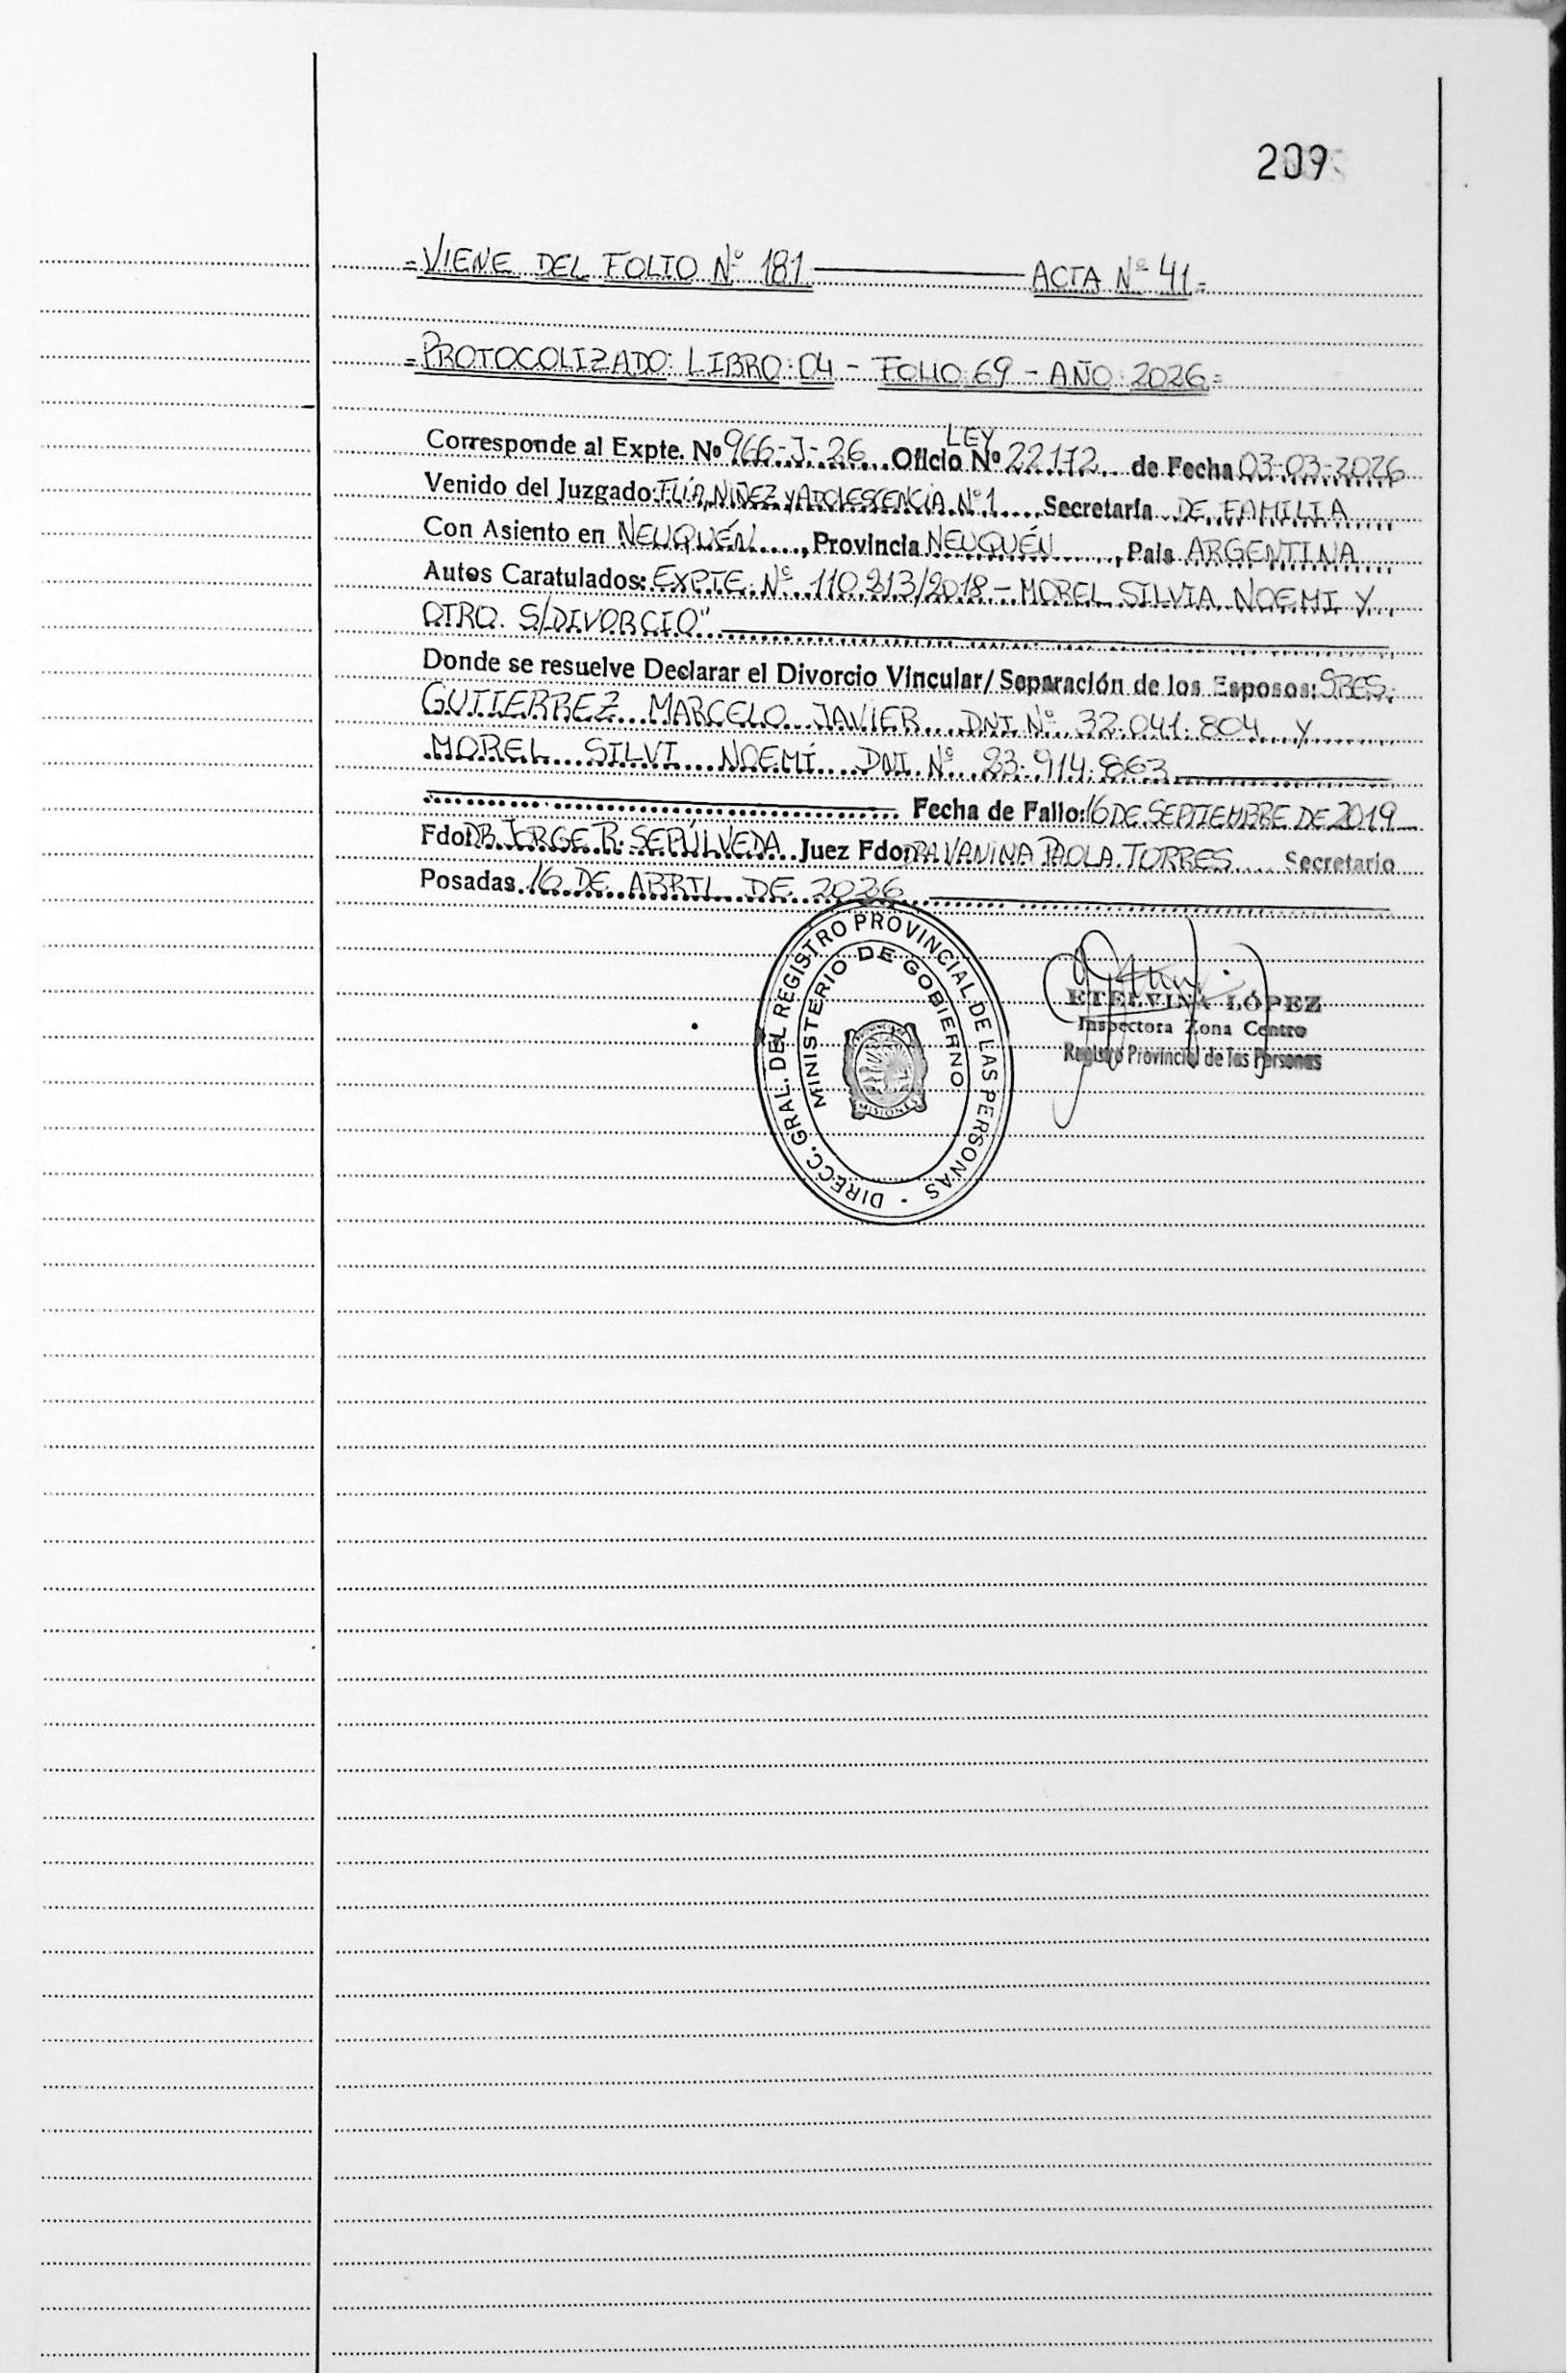 209
=VIENE DEL FOLIO Nº 181 ——— ACTA Nº 41=
=PROTOCOLIZADO: LIBRO: 04 - FOLIO: 69 - AÑO: 2026=
LEY
Corresponde al Expte. Nº 966-J-26 Oficio Nº 22172 de Fecha 03-03-2026
Venido del Juzgado: FLIA, NIÑEZ Y ADOLESCENCIA Nº 1 Secretaría DE FAMILIA
Con Asiento en NEUQUÉN, Provincia NEUQUÉN, Pais ARGENTINA
Autos Caratulados: EXPTE. Nº 110.213/2018 - MOREL SILVIA NOEMI Y
OTRO. S/DIVORCIO"
Donde se resuelve Declarar el Divorcio Vincular/Separación de los Esposos: SRES.
GUTIERREZ MARCELO JAVIER DNI Nº 32.041.804 Y
MOREL SILVI NOEMÍ DNI. Nº 23.914.863
Fecha de Fallo: 16 DE SEPTIEMBRE DE 2019
Fdo: DR. JORGE R. SEPÚLVEDA Juez Fdo: DRA VANINA PAOLA TORRES Secretario
Posadas 16 DE ABRIL DE 2026
DIRECC. GRAL. DEL REGISTRO PROVINCIAL DE LAS PERSONAS
MINISTERIO DE GOBIERNO
MISIONES
ETELVINA LÓPEZ
Inspectora Zona Centro
Registro Provincial de las Personas